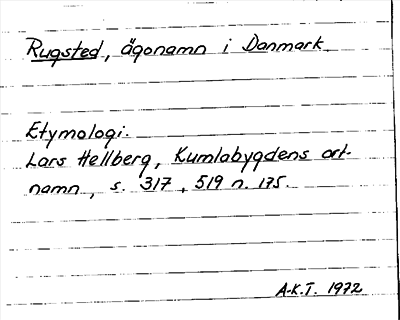 Rugsted, ägonamn i Danmark
Etymologi.
Lars Hellberg, Kumlabygdens ort-
namn, s. 317, 519 n. 175.
A-K.T. 1972